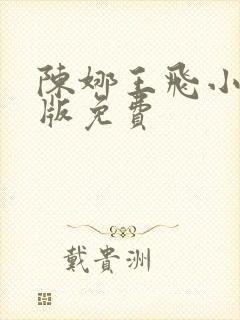 陳娜王飛小
版免費
戴貴洲